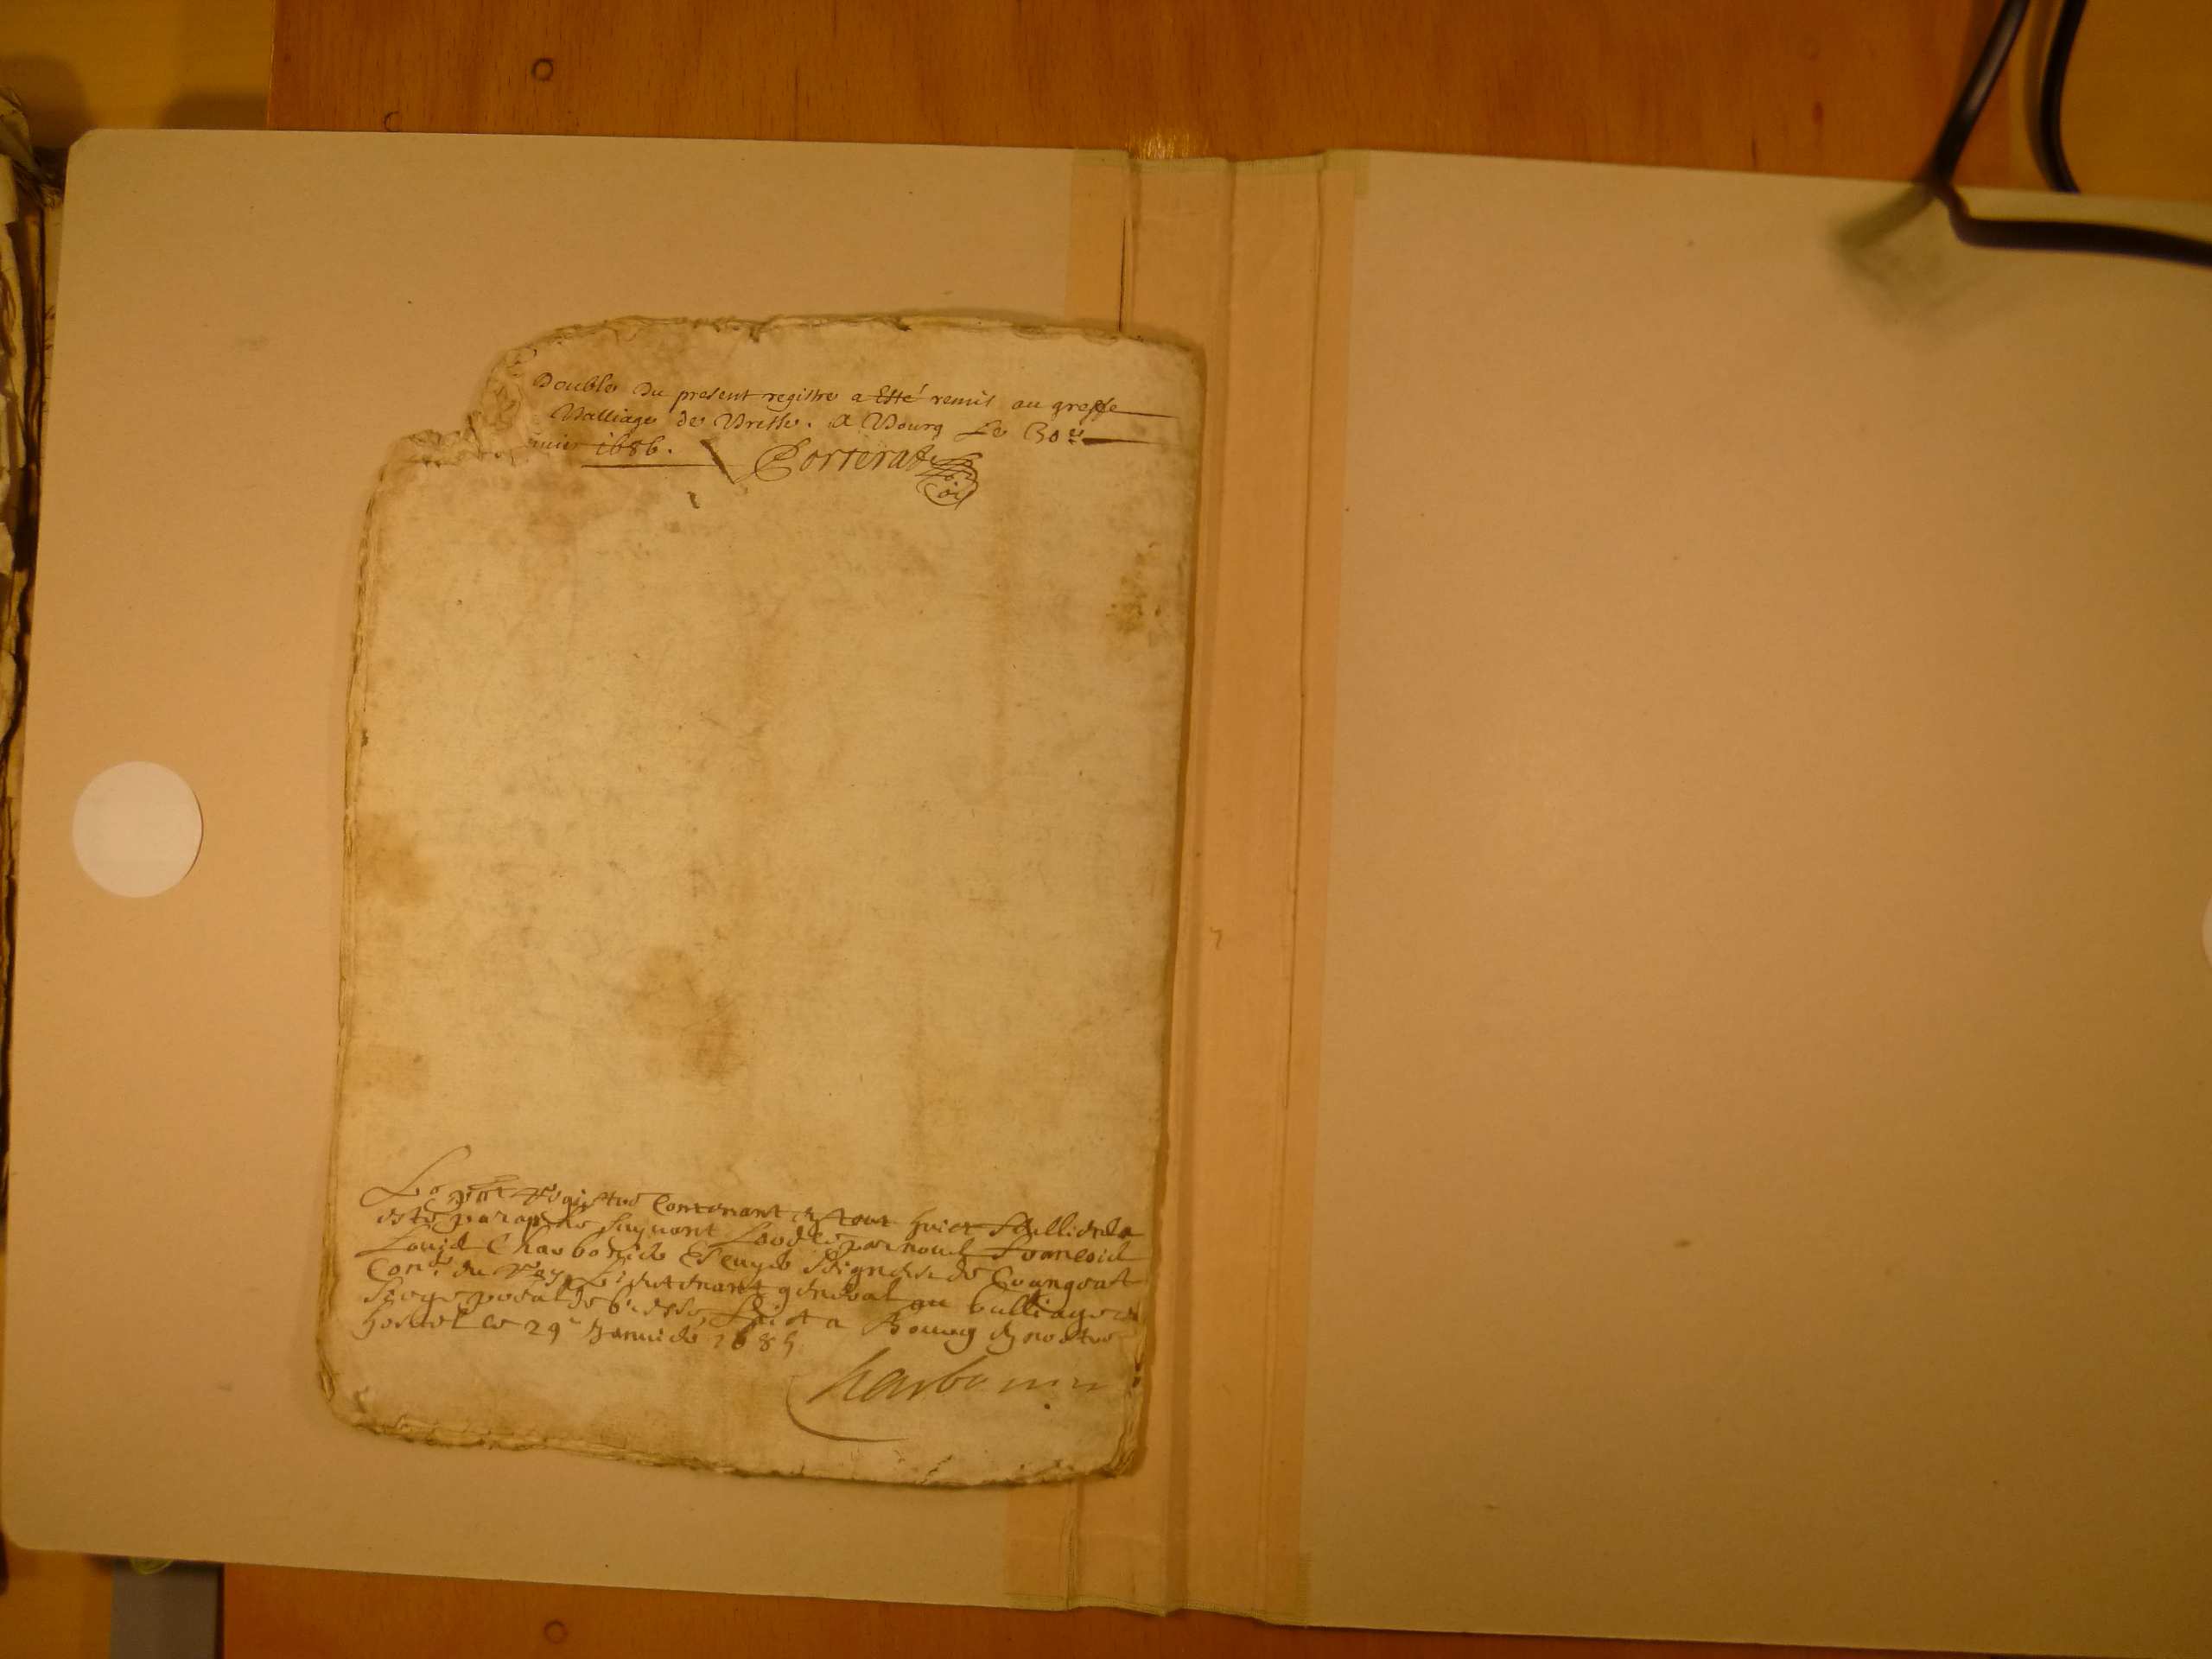 Double du present registre a Esté remis au greffe
Balliage de Bresse. A Bourg Le 30e
nvier 1686.
Corterat
Le pnt registre Contenant En tout huict feullietz a
esté paraphé suyvant Lordre par nous francois
Louis Charbonnier Escuyer Seigneur de Crangeat
Conr. du Roy Lieutenant general au balliage et
siege pdal de bresse, faict a Bourg En nostre
hostel le 29e Janvier 1685
Charbonnier